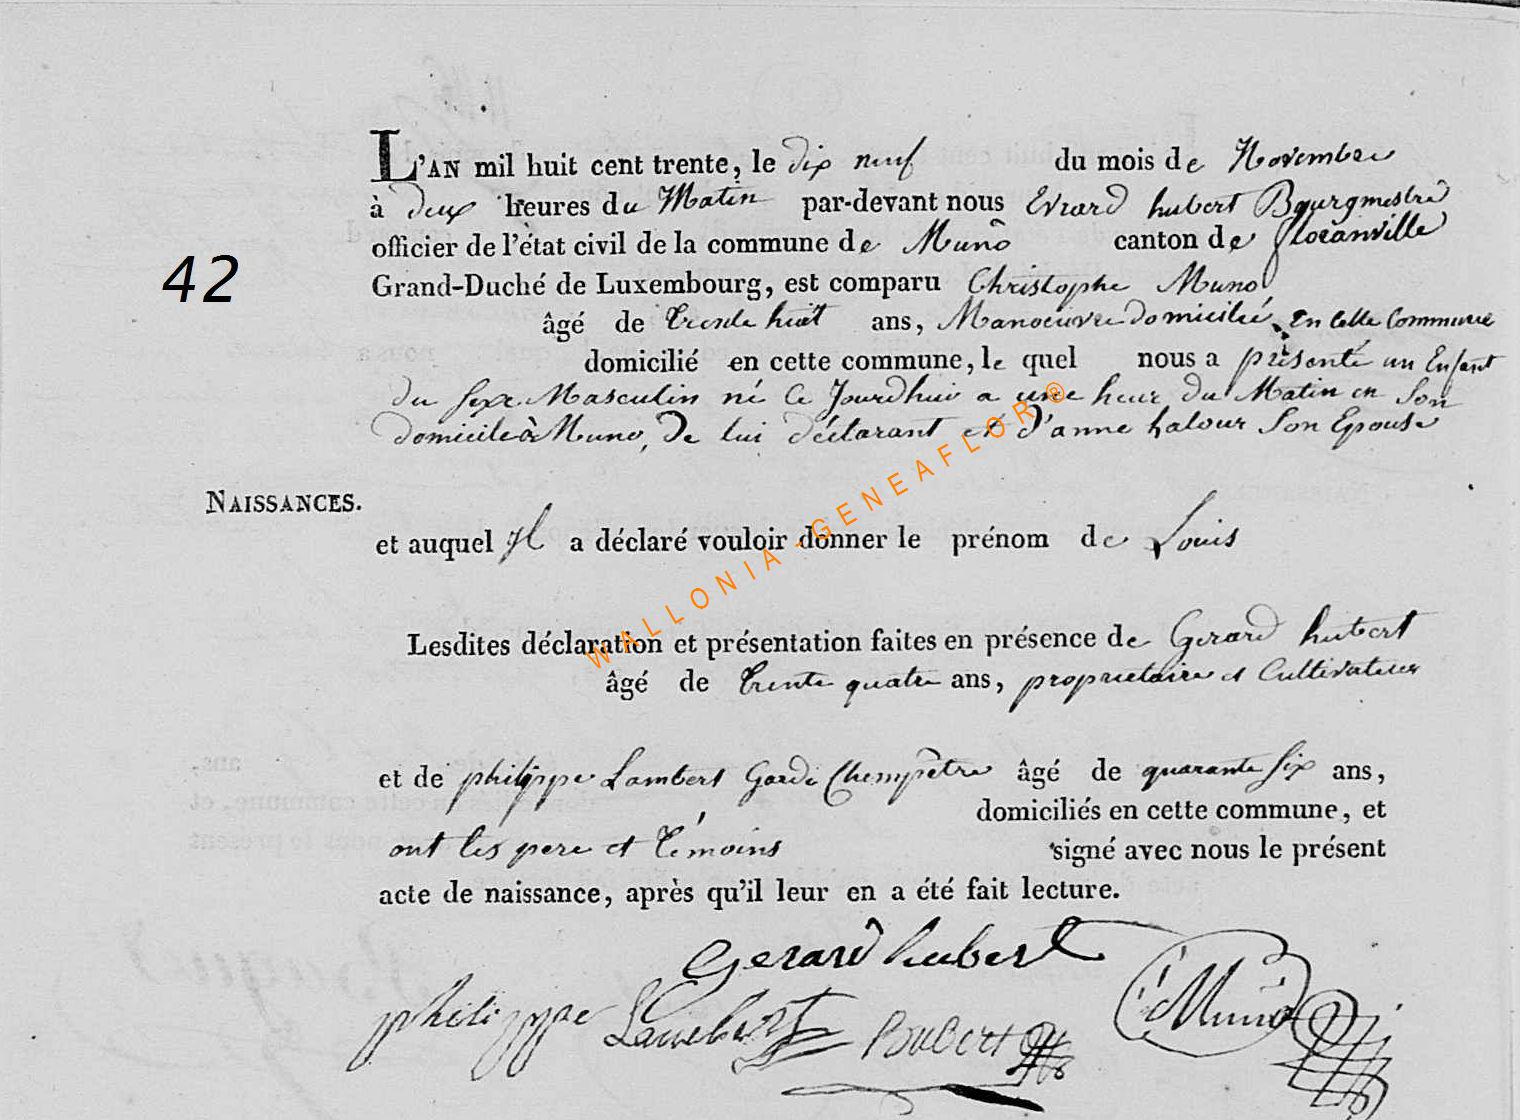 L'AN mil huit cent trente, le dix neuf du mois de Novembre
à deux heures du Matin par-devant nous Evrard hubert Bourgmestre
officier de l'état civil de la commune de Muno canton de floranville
42
Grand-Duché de Luxembourg, est comparu Christophe Muno
âgé de trente huit ans, Manoeuvre domicilié En Cette Commune
domicilié en cette commune, le quel nous a présenté un Enfant
du sexe Masculin né Ce Jourdhui a une heur du Matin en Son
domicile à Muno, De lui déclarant et d'anne halour Son Epouse
NAISSANCES.
et auquel Il a déclaré vouloir donner le prénom de Louis
WALLONIA-GENEAFLOR®
Lesdites déclaration et présentation faites en présence de Gerard hubert
âgé de trente quatre ans, proprietaire et Cultivateur
et de philippe Lambert Garde Champêtre âgé de quarante six ans,
domiciliés en cette commune, et
ont les pere et témoins signé avec nous le présent
acte de naissance, après qu'il leur en a été fait lecture.
Gerard hubert
philippe Lambert Muno